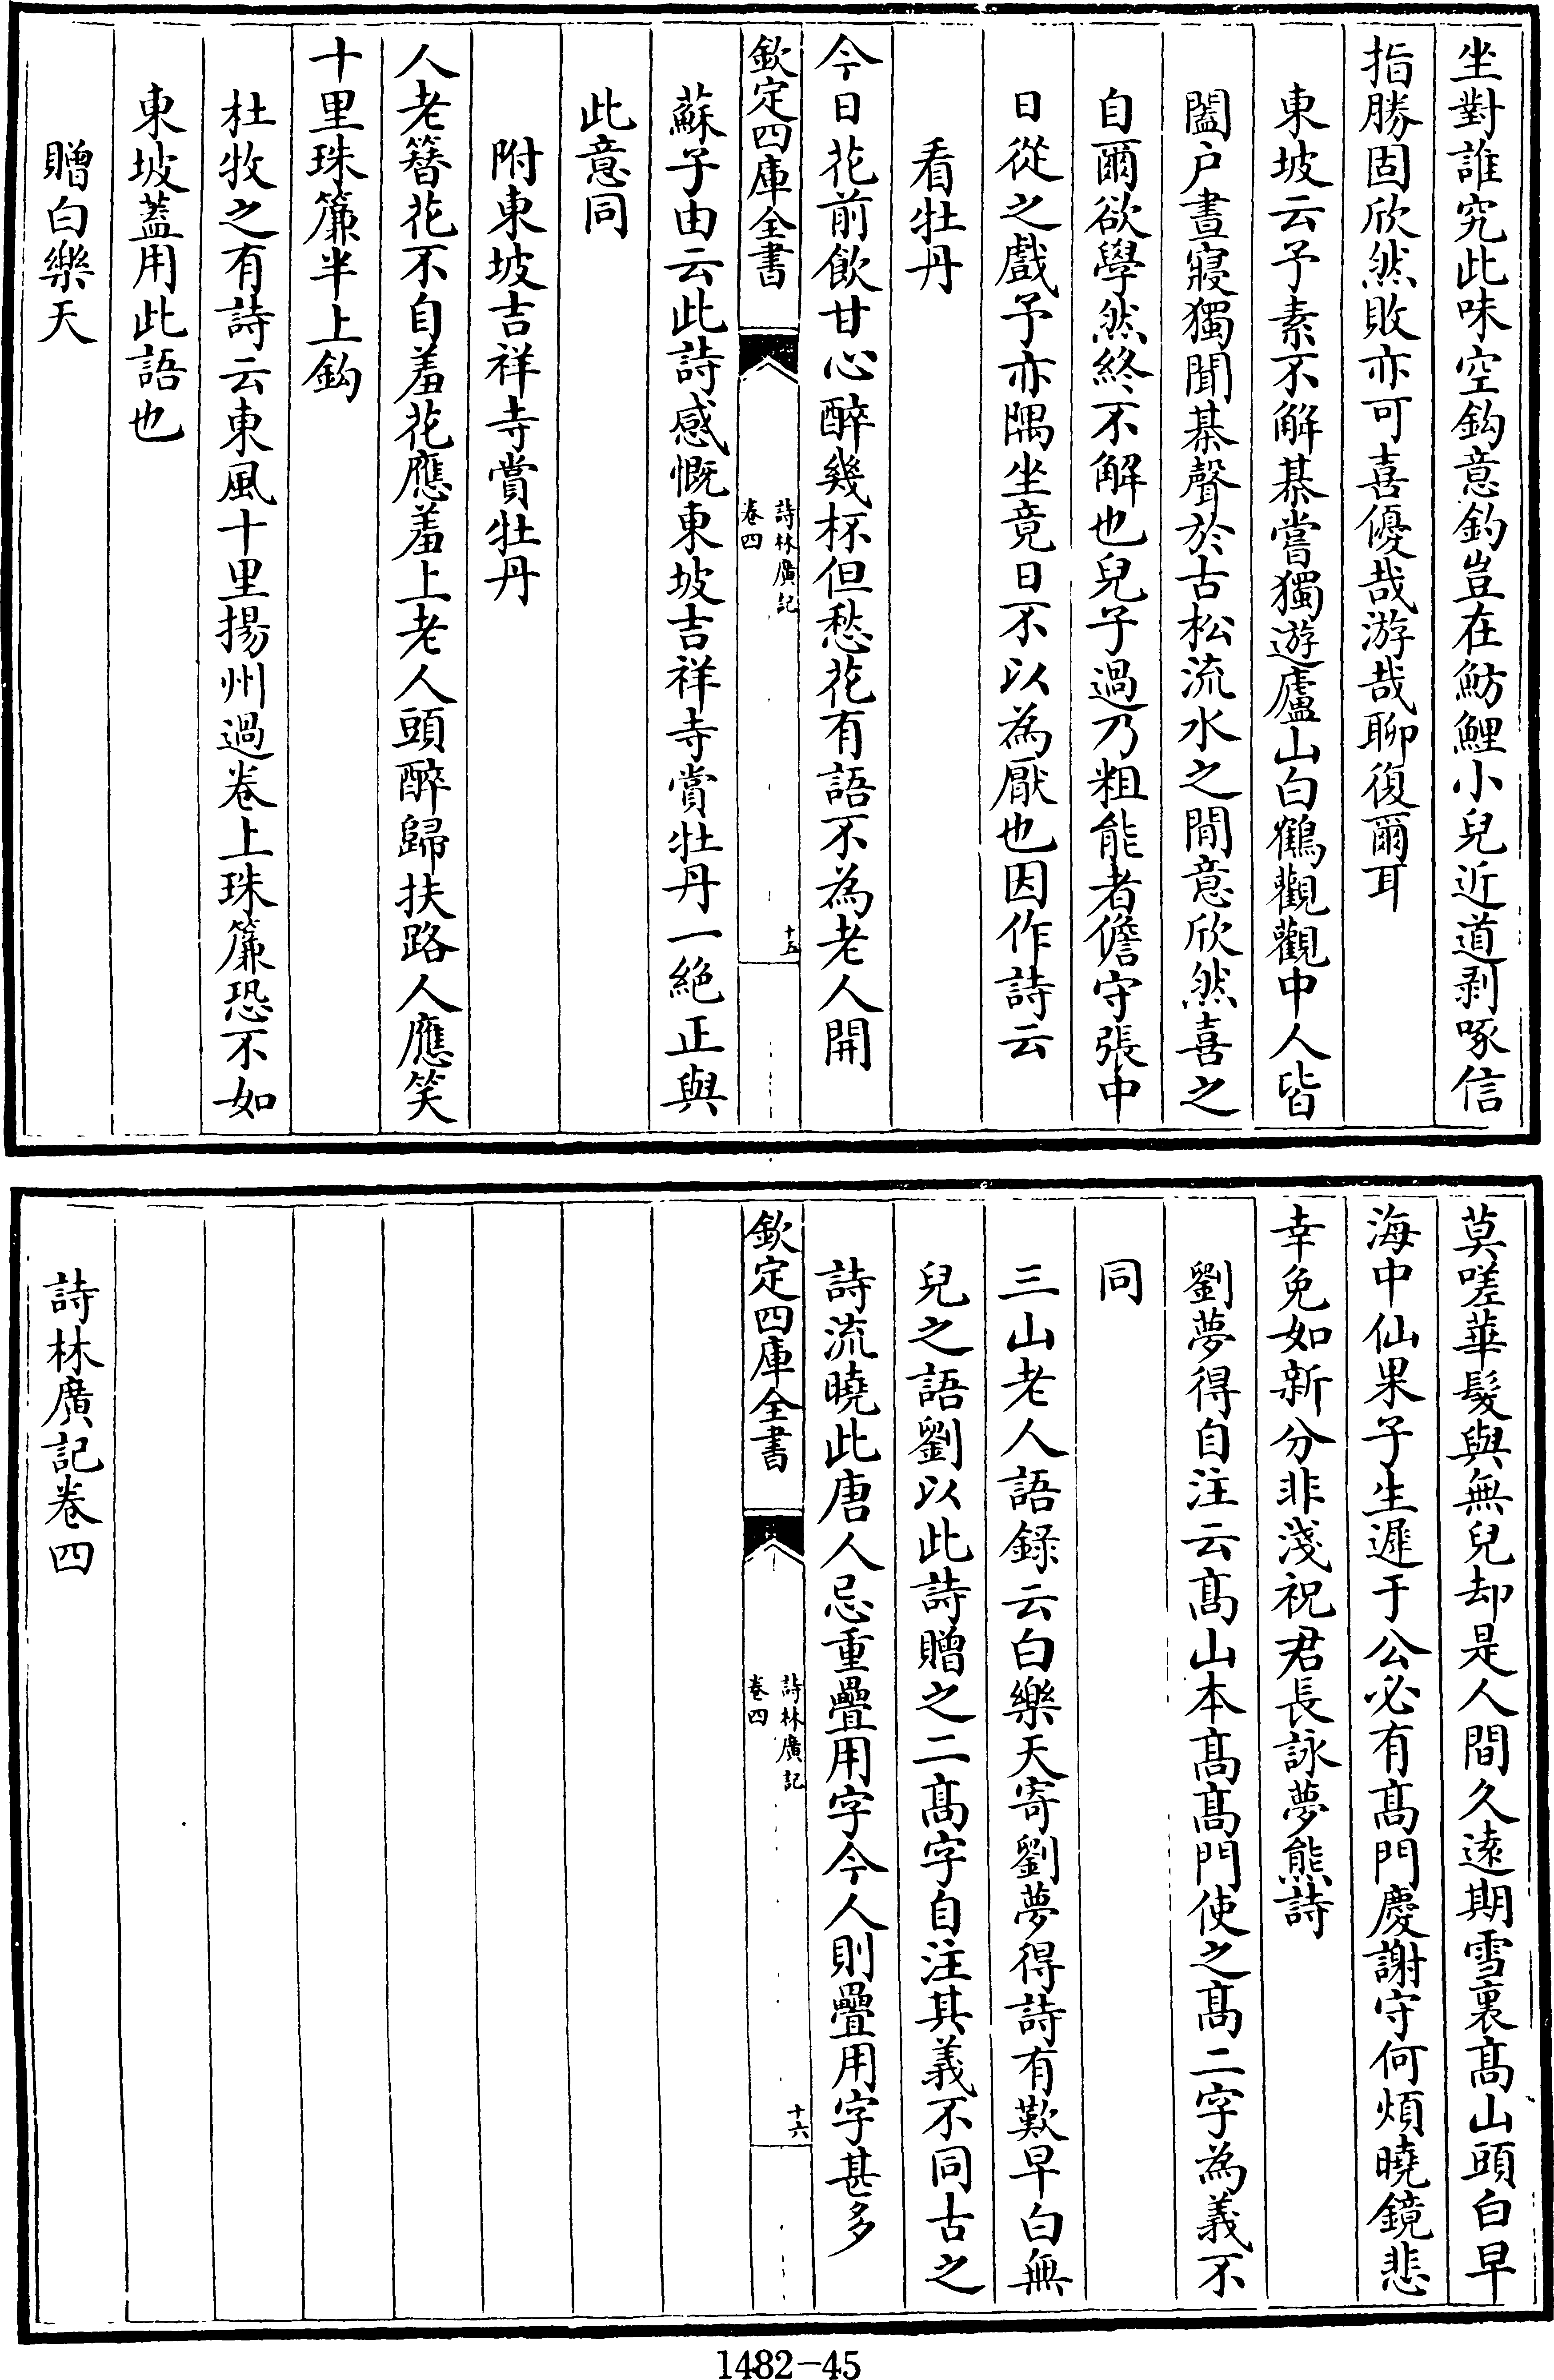 坐對誰究此味空鈎意釣豈在魴鯉小兒近道剥啄信
指勝固欣然敗亦可喜優哉游哉聊復爾耳
東坡云予素不解棊嘗獨遊廬山白鶴觀觀中人皆
闔户晝寢獨聞棊聲於古松流水之間意欣然喜之
自爾欲學然終不解也兒子過乃粗能者儋守張中
日從之戲予亦隅坐竟日不以為厭也因作詩云
看牡丹
今日花前飲甘心醉幾杯但愁花有語不為老人開
欽定四庫全書
詩林廣記
卷四
十五
蘇子由云此詩感慨東坡吉祥寺賞牡丹一絶正與
此意同
附東坡吉祥寺賞牡丹
人老簪花不自羞花應羞上老人頭醉歸扶路人應笑
十里珠簾半上鈎
杜牧之有詩云東風十里揚州過卷上珠簾恐不如
東坡蓋用此語也
贈白樂天
莫嗟華髮與無兒却是人間久遠期雪裏髙山頭白早
海中仙果子生遲于公必有髙門慶謝守何煩曉鏡悲
幸免如新分非淺祝君長詠夢熊詩
劉夢得自注云髙山本髙髙門使之髙二字為義不
同
三山老人語録云白樂天寄劉夢得詩有歎早白無
兒之語劉以此詩贈之二髙字自注其義不同古之
詩流曉此唐人忌重疊用字今人則疊用字甚多
欽定四庫全書
詩林廣記
卷四
十六
詩林廣記卷四
1482-45